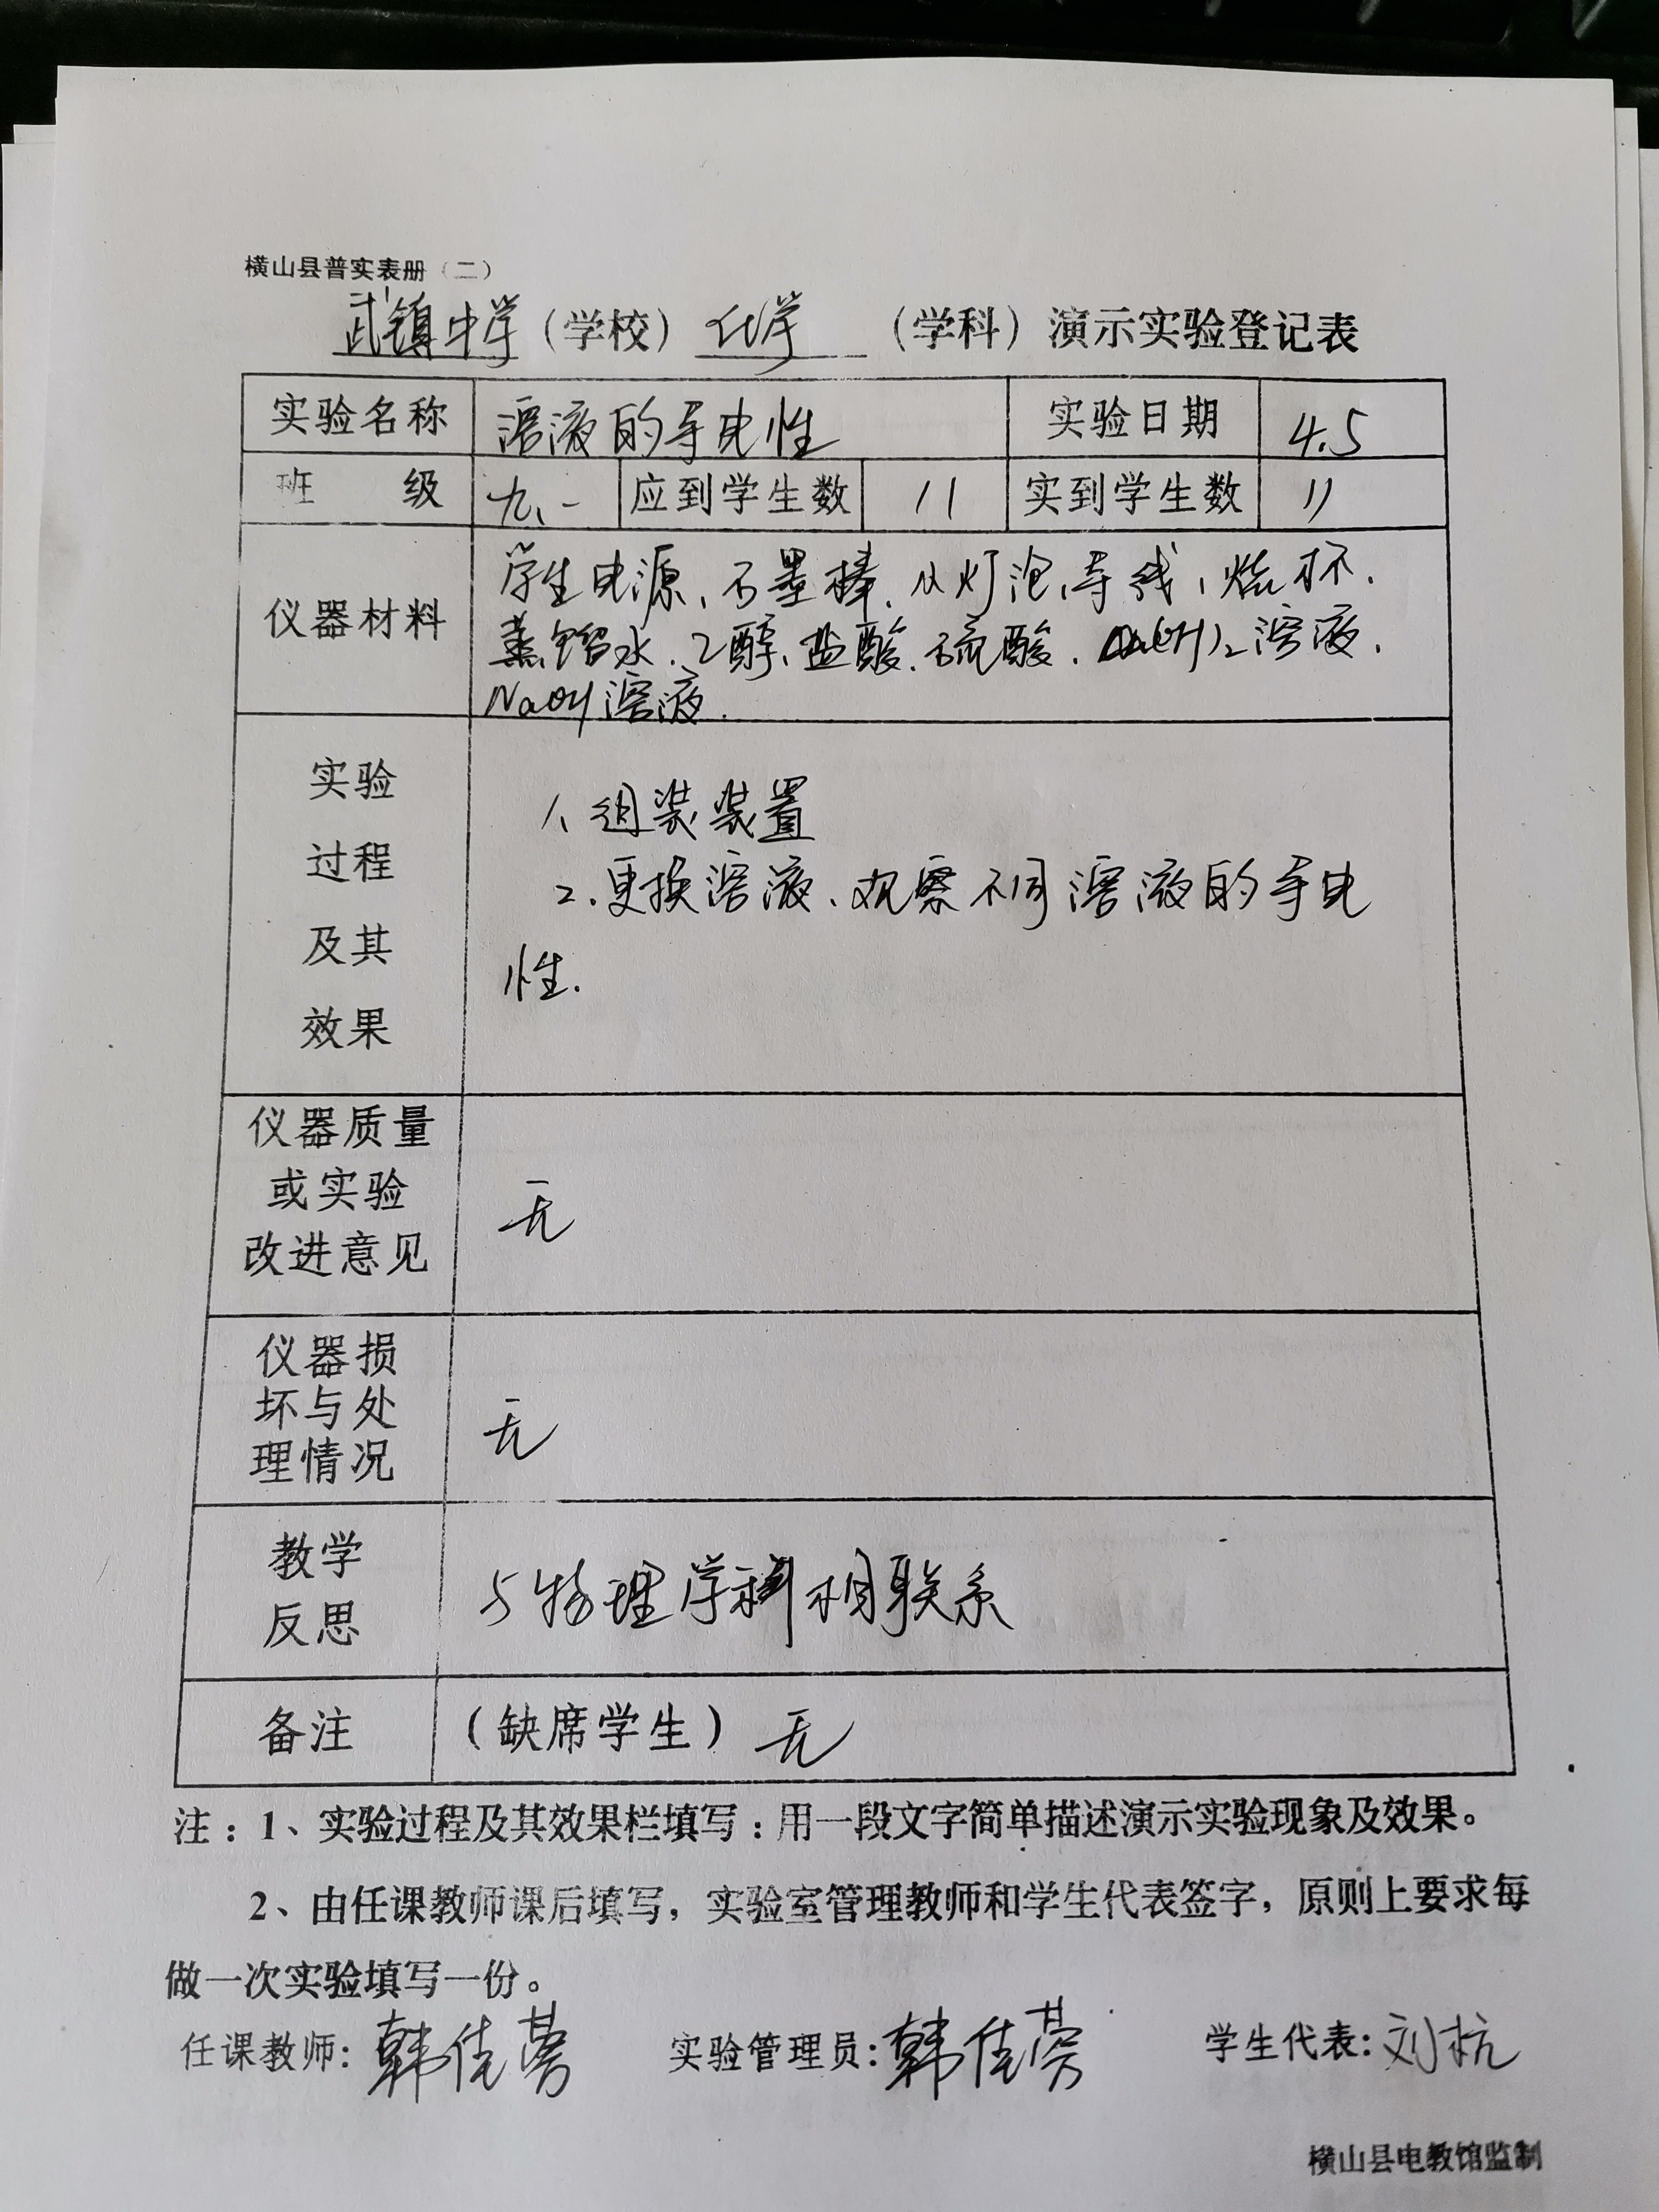 横山县普实表册（二）
武镇中学（学校）化学（学科）演示实验登记表
实验名称 溶液的导电性 实验日期 4.5
班级 九、一 应到学生数 11 实到学生数 11
仪器材料 学生电源、石墨棒、小灯泡、导线、烧杯.
蒸馏水、乙醇、盐酸、硫酸、Ca(OH)₂溶液、
NaOH溶液.
实验
过程
及其
效果
1、组装装置
2、更换溶液、观察不同溶液的导电
性.
仪器质量
或实验
改进意见
无
仪器损
坏与处
理情况
无
教学
反思
与物理学科相联系
备注 （缺席学生）无
注：1、实验过程及其效果栏填写：用一段文字简单描述演示实验现象及效果。
2、由任课教师课后填写，实验室管理教师和学生代表签字，原则上要求每
做一次实验填写一份。
任课教师：韩佳 实验管理员：韩佳 学生代表：刘杭
横山县电教馆监制